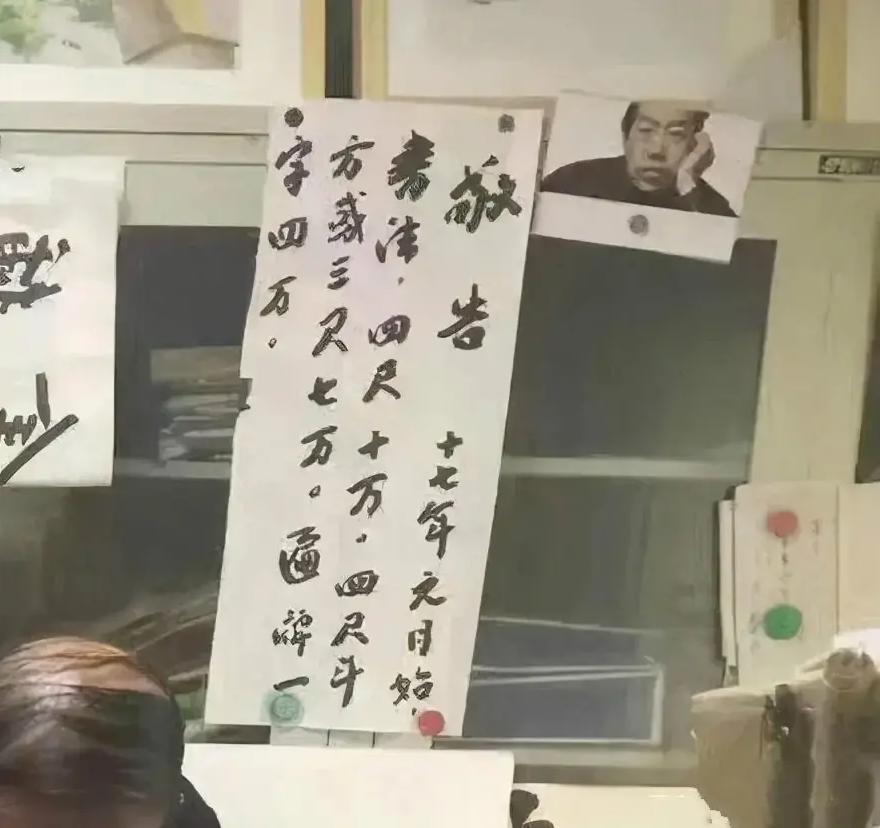 敬告 十七年元月始.
书法，四尺十万。四尺斗
方或三尺七万。匾牌一
字四万。